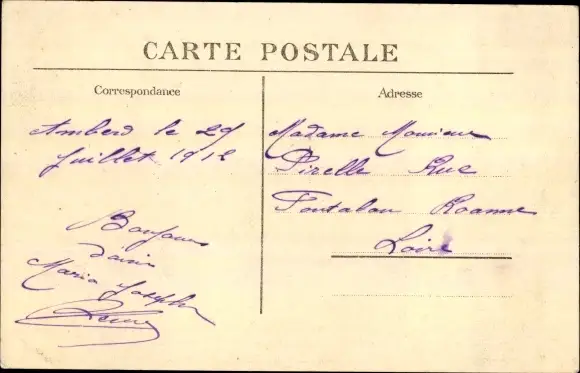 CARTE POSTALE
Correspondance
Ambert le 29
Juillet 1912
Bonjour
Maria Joseph
Adresse
Madame Monieur
Pirelle Rue
Fontalon Roanne
Loire